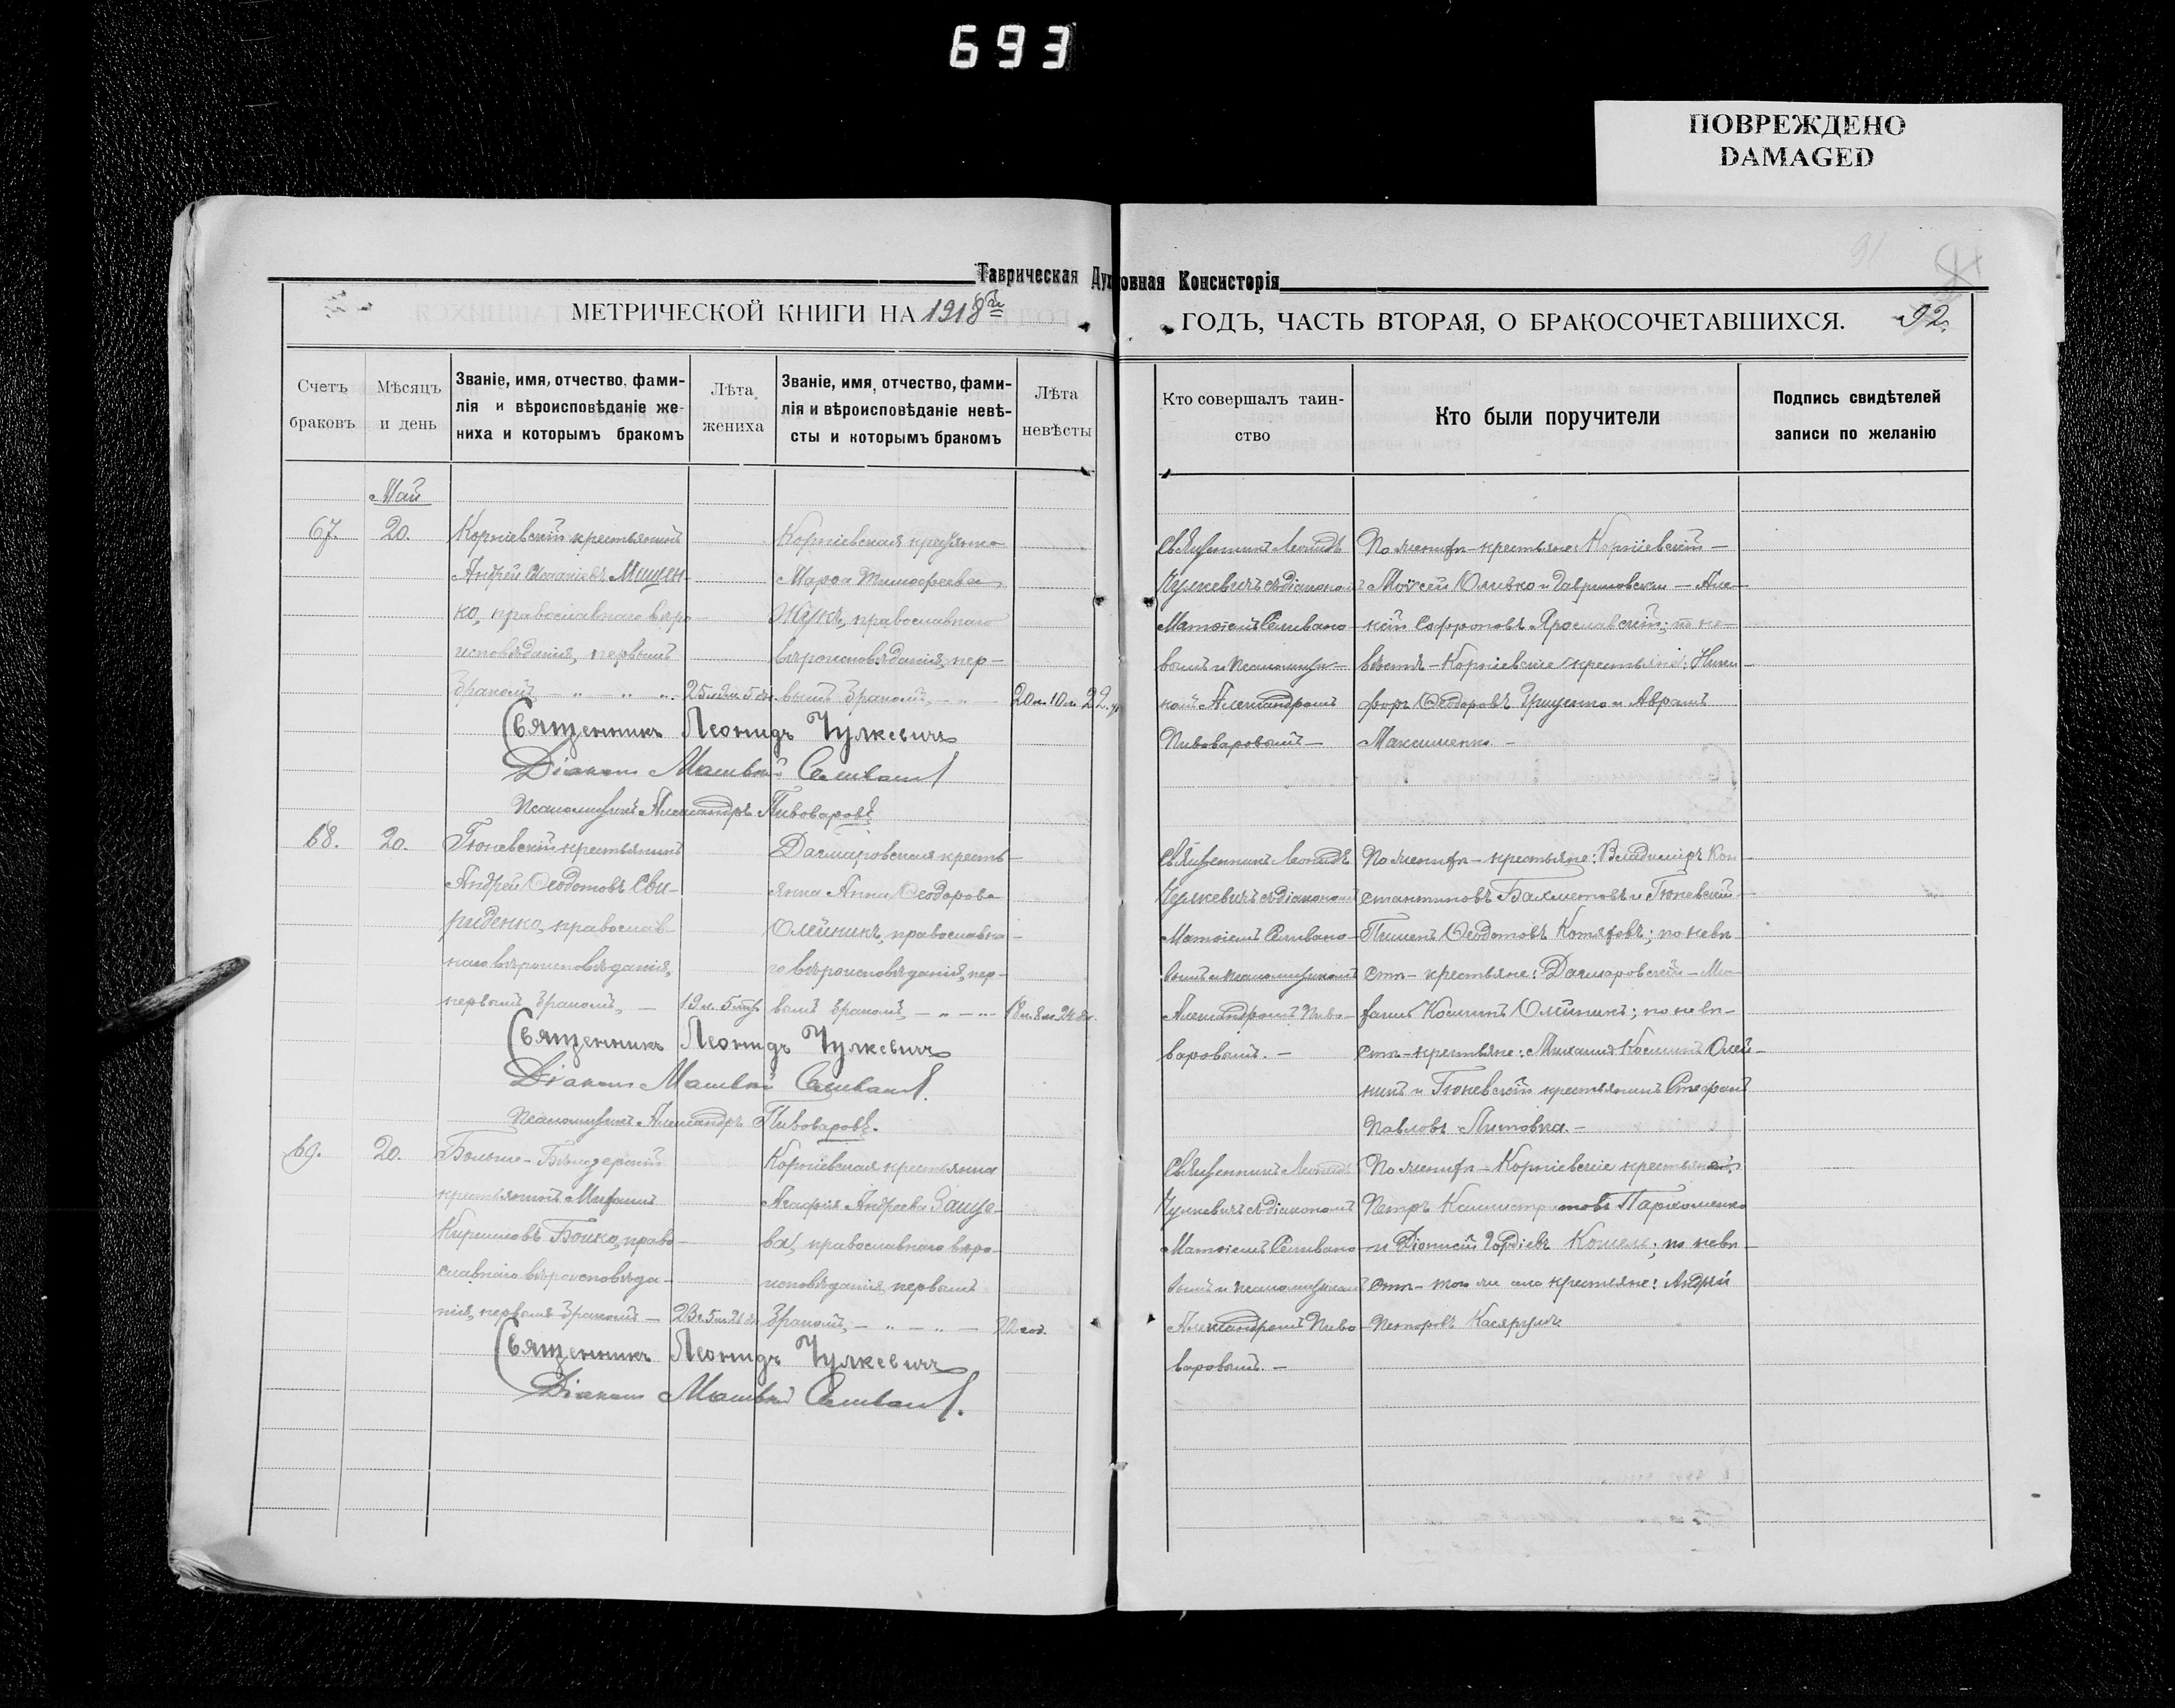 693
ПОВРЕЖДЕНО
DAMAGED
91
Таврическая Духовная Консисторія
МЕТРИЧЕСКОЙ КНИГИ НА 1918й
ГОДЪ, ЧАСТЬ ВТОРАЯ, О БРАКОСОЧЕТАВШИХСЯ.
92.
Счетъ браковъ
Мѣсяцъ и день
Званіе, имя, отчество, фами-
лія и вѣроисповѣданіе же-
ниха и которымъ бракомъ
Лѣта жениха
Званіе, имя, отчество, фами-
лія и вѣроисповѣданіе невѣ-
сты и которымъ бракомъ
Лѣта невѣсты
Кто совершалъ таин-
ство
Кто были поручители
Подпись свидѣтелей
записи по желанію
Май
67.
20.
Корніевскій крестьянинъ
Андрей Мищен-
ко, православнаго вѣро-
исповѣданія, первымъ
бракомъ
25
Корніевская крестьянка
Марѳа Тимоѳеева
Жукъ, православнаго
вѣроисповѣданія, пер-
вымъ бракомъ,
20 л. 10 м. 22
Священникъ Леонидъ
Чулкевичъ съ діакономъ
Матѳіемъ Селивано-
вымъ и псаломщи-
комъ Александромъ
Пивоваровымъ —
По женихѣ - крестьяне: Корніевскій —
Моѵсей и Гавриловскій — Але-
ксѣй Софроновъ Ярославскій; по не-
вѣстѣ - Корніевскіе крестьяне: Ники-
форъ Ѳеодоровъ Грищенко и Аврамъ
Максименко —
Священникъ Леонидъ Чулкевичъ
Діаконъ Матвѣй Селиванов
Псаломщикъ Александръ Пивоваровъ
68.
20.
Тюневскій крестьянинъ
Андрей Ѳеодотовъ Сви-
риденко, православ-
наго вѣроисповѣданія,
первымъ бракомъ, —
19 л. 5 мѣс.
крестья-
янка Анна Ѳеодорова
Олейникъ, православна-
го вѣроисповѣданія, пер-
вымъ бракомъ,
18 л. 8 м. 24 дн.
Священникъ Леонидъ
Чулкевичъ съ діакономъ
Матѳіемъ Селивано-
вымъ и псаломщикомъ
Александромъ Пиво-
варовымъ. —
По женихѣ - крестьяне: Владиміръ Кон-
стантиновъ Бахметовъ и Тюневскій
Пименъ Ѳеодотовъ; по невѣ-
стѣ - крестьяне: — Ми-
Олейникъ; по невѣ-
стѣ - крестьяне: Михаилъ Олей-
никъ и Тюневскій крестьянинъ Стефанъ
Павловъ Литовка. —
Священникъ Леонидъ Чулкевичъ
Діаконъ Матвѣй Селиванов.
Псаломщикъ Александръ Пивоваровъ.
69.
20.
Больше-Бѣлозерскій
крестьянинъ
Кирилловъ Бойко, право-
славнаго вѣроисповѣда-
нія, первымъ бракомъ —
23 г. 5 м. 26 дн.
Корніевская крестьянка
Агафія Андреева Заице-
ва, православнаго вѣро-
исповѣданія, первымъ
бракомъ,
22 год.
Священникъ Леонидъ
Чулкевичъ съ діакономъ
Матѳіемъ Селивано-
вымъ и псаломщикомъ
Александромъ Пиво-
варовымъ. —
По женихѣ - Корніевскіе крестьяне:
Петръ Каллистратовъ Пархоменко
и Діонисій Гордіевъ Кошель; по невѣ-
стѣ - того же села крестьяне: Андрей
Петровъ
Священникъ Леонидъ Чулкевичъ
Діаконъ Матвѣй Селиванов.